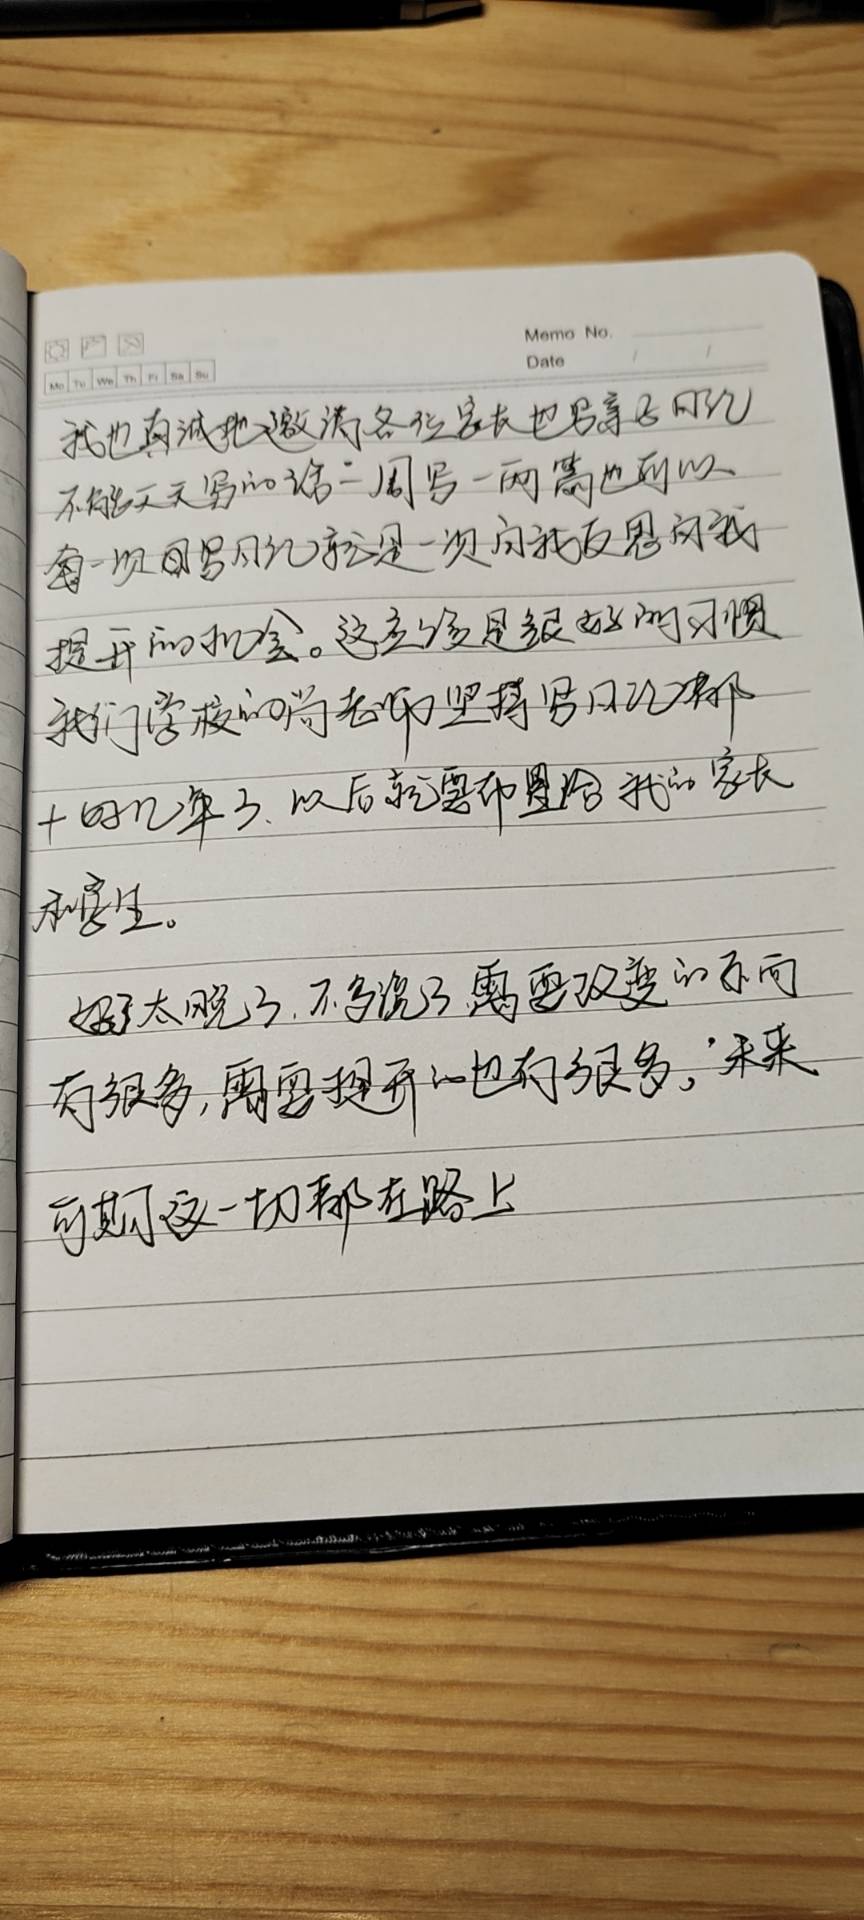 Memo No.
Date / /
Mo Tu We Th Fr Sa Su
我也真诚地邀请各位家长也写亲子日记
不能天天写的话二周写一两篇也可以
每一次写日记就是一次自我反思自我
提升的机会。这应该是很好的习惯
我们学校的尚老师坚持写日记都
十好几年了、以后就要布置给我的家长
和学生。
好了太晚了、不多说了需要改变的东西
有很多,需要提升的也有很多,未来
可期这一切都在路上